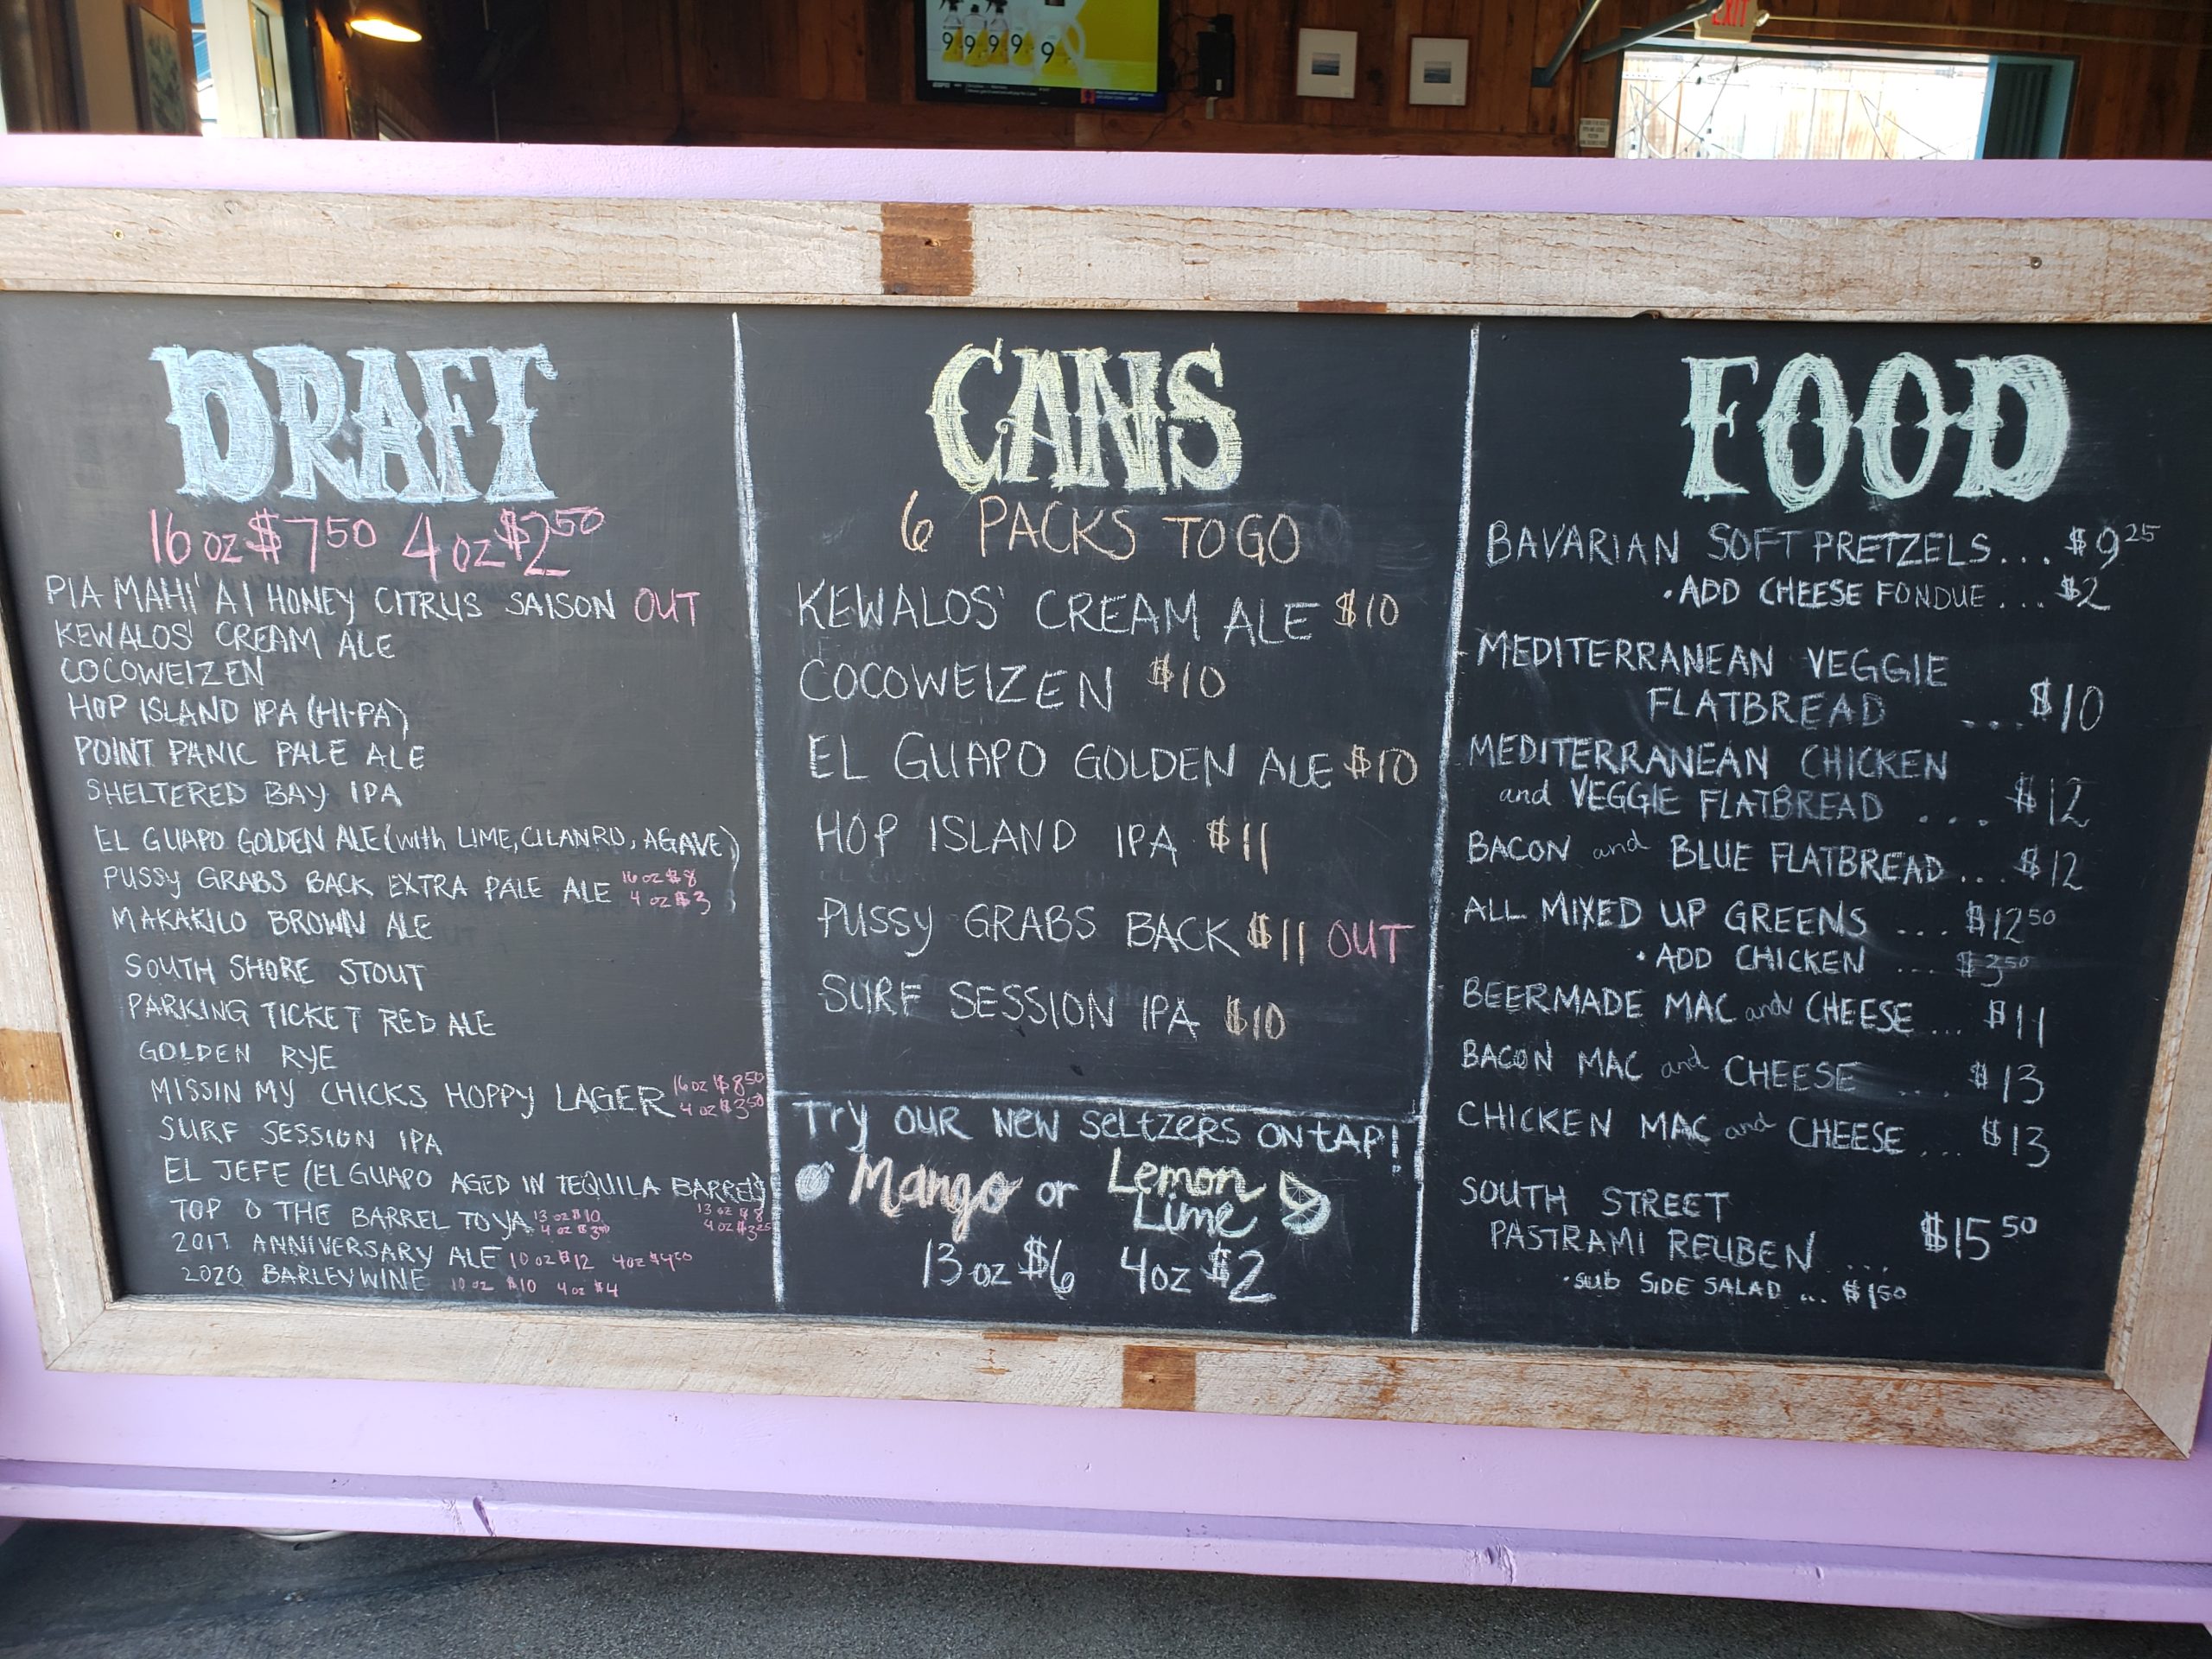 EXIT
9 9 9 9 9
DRAFT
16 oz $7 50 4 oz $2 50
PIA MAHI'AI HONEY CITRUS SAISON OUT
KEWALOS' CREAM ALE
COCOWEIZEN
HOP ISLAND IPA (HI-PA)
POINT PANIC PALE ALE
SHELTERED BAY IPA
EL GUAPO GOLDEN ALE (with LIME, CILANRO, AGAVE)
PUSSY GRABS BACK EXTRA PALE ALE 16 oz $8
4 oz $3
MAKAKILO BROWN ALE
SOUTH SHORE STOUT
PARKING TICKET RED ALE
GOLDEN RYE
MISSIN MY CHICKS HOPPY LAGER 16 oz $8 50
4 oz $3 50
SURF SESSION IPA
EL JEFE (EL GUAPO AGED IN TEQUILA BARREL)
13 oz $8
4 oz $3 25
TOP O THE BARREL TO YA 13 oz $10
4 oz $3 50
2017 ANNIVERSARY ALE 10 oz $12 4 oz $4 50
2020 BARLEYWINE 10 oz $10 4 oz $4
CANS
6 PACKS TO GO
KEWALOS' CREAM ALE $10
COCOWEIZEN $10
EL GUAPO GOLDEN ALE $10
HOP ISLAND IPA $11
PUSSY GRABS BACK $11 OUT
SURF SESSION IPA $10
Try OUR NEW SELTZERS ON TAP!
Mango or Lemon
Lime
13 oz $6 4 oz $2
FOOD
BAVARIAN SOFT PRETZELS... $9 25
• ADD CHEESE FONDUE... $2
MEDITERRANEAN VEGGIE
FLATBREAD ... $10
MEDITERRANEAN CHICKEN
and VEGGIE FLATBREAD .... $12
BACON and BLUE FLATBREAD... $12
ALL MIXED UP GREENS ... $12 50
• ADD CHICKEN ... $3 50
BEERMADE MAC and CHEESE ... $11
BACON MAC and CHEESE ... $13
CHICKEN MAC and CHEESE ... $13
SOUTH STREET
PASTRAMI REUBEN ... $15 50
• sub SIDE SALAD ... $1 50